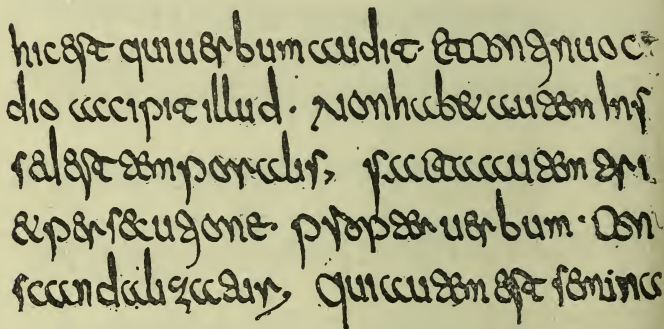 hic est qui uerbum audit · et continuo c
dio accipit illud · Non habet autem In s
sed est temporalis, facta autem tri
et persecutione · propter uerbum · con
scandalizatur, qui autem est semina